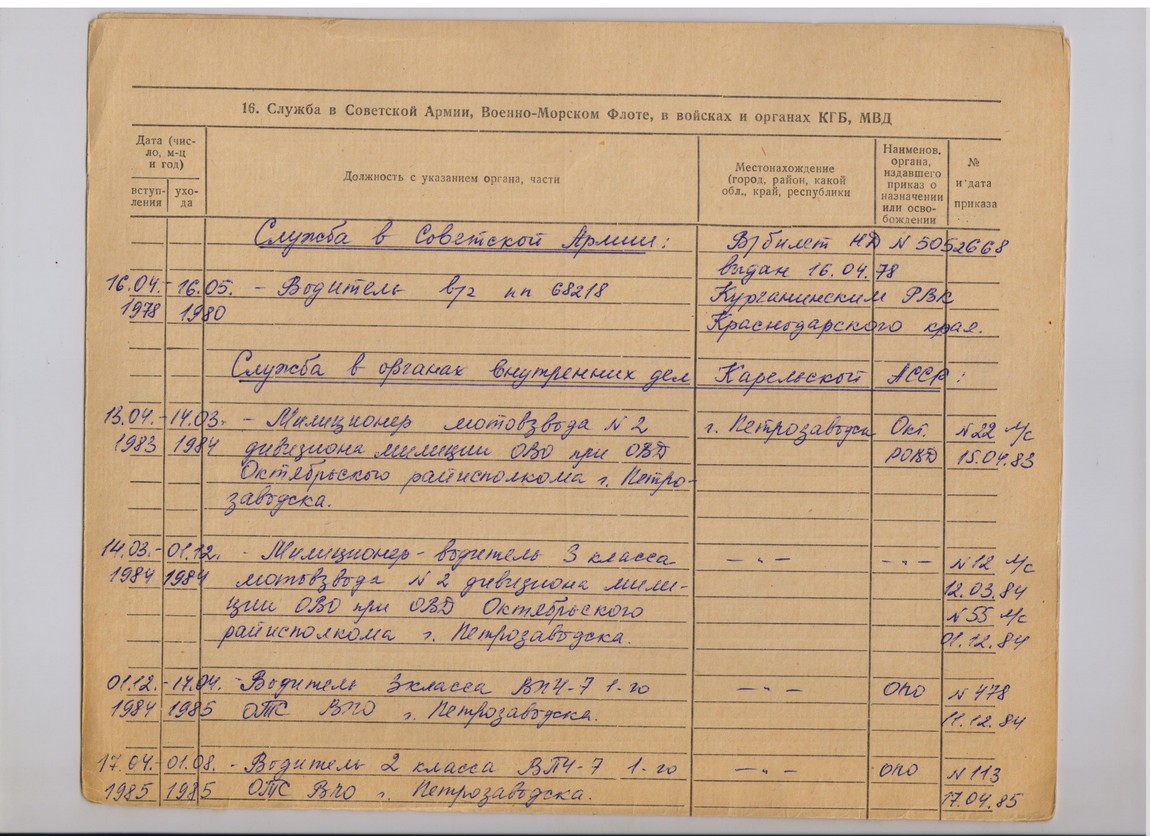 16. Служба в Советской Армии, Военно-Морском Флоте, в войсках и органах КГБ, МВД
Дата (чис-
ло, м-ц
и год)
вступ-
ления
ухо-
да
Должность с указанием органа, части
Местонахождение
(город, район, какой
обл., край, республики
Наименов.
органа,
издавшего
приказ о
назначении
или осво-
бождении
№
и дата
приказа
Служба в Советской Армии: В/билет НД N 5052668
выдан 16.04.78
16.04.- 16.05. - Водитель в/г пп 68218 Курганинским РВК
1978 1980 Краснодарского края.
Служба в органах внутренних дел Карельской АССР:
13.04.- 14.03. - Милиционер мотовзвода N 2 г. Петрозаводск Окт. N 22 л/с
1983 1984 дивизиона милиции ОВО при ОВД РОВД 15.04.83
Октябрьского райисполкома г. Петро-
заводска.
14.03.- 01.12. - Милиционер-водитель 3 класса — „ — - „ - N 12 л/с
1984 1984 мотовзвода N 2 дивизиона мили- 12.03.84
ции ОВО при ОВД Октябрьского N 55 л/с
райисполкома г. Петрозаводска. 01.12.84
01.12.- 17.04. - Водитель 3 класса ВПЧ-7 1-го — „ — ОПО N 478
1984 1985 ОТС ВПО г. Петрозаводска. 11.12.84
17.04.- 01.08. - Водитель 2 класса ВПЧ-7 1-го — „ — ОПО N 113
1985 1985 ОТС ВПО г. Петрозаводска. 17.04.85